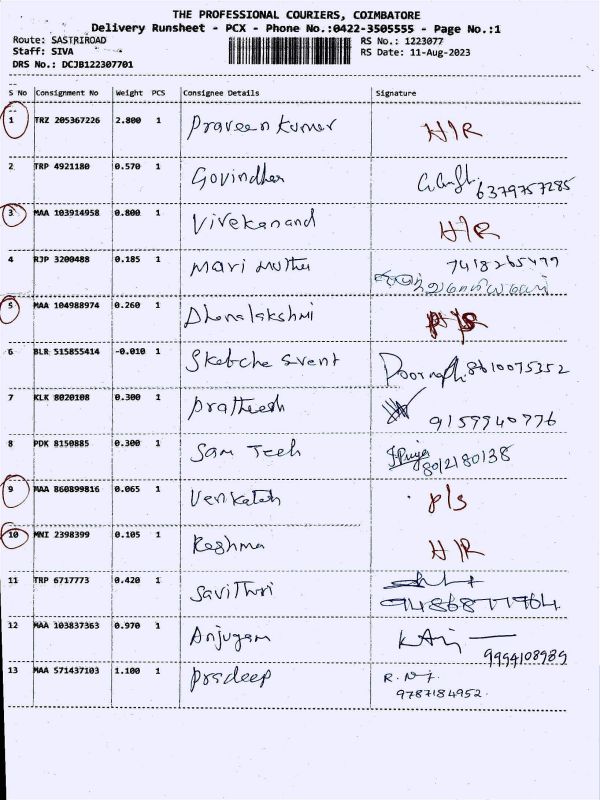 THE PROFESSIONAL COURIERS, COIMBATORE
Delivery Runsheet - PCX - Phone No.:0422-3505555 - Page No.:1
Route: SASTRIROAD RS No.: 1223077
Staff: SIVA RS Date: 11-Aug-2023
DRS No.: DCJB122307701
S No Consignment No Weight PCS Consignee Details Signature
1 TRZ 205367226 2.800 1 Praveen Kumar H/R
2 TRP 4921180 0.570 1 Govindhan 6379757285
3 MAA 103914958 0.800 1 Vivekanand H/R
4 RJP 3200488 0.185 1 Mari Muthu 7418265479
5 MAA 104988974 0.260 1 Dhanalakshmi
6 BLR 515855414 -0.010 1 Sketche event 8610075352
7 KLK 8020108 0.300 1 Pratheesh 9159940776
8 PDK 8150885 0.300 1 Sam Tech J.Priya
8012180138
9 MAA 860899816 0.065 1 Venkatesh P/S
10 MNI 2398399 0.105 1 Reshma H/R
11 TRP 6717773 0.420 1 Savithri
9486877964
12 MAA 103837363 0.970 1 Anjugam
9994108989
13 MAA 571437103 1.100 1 Pradeep
9787184952